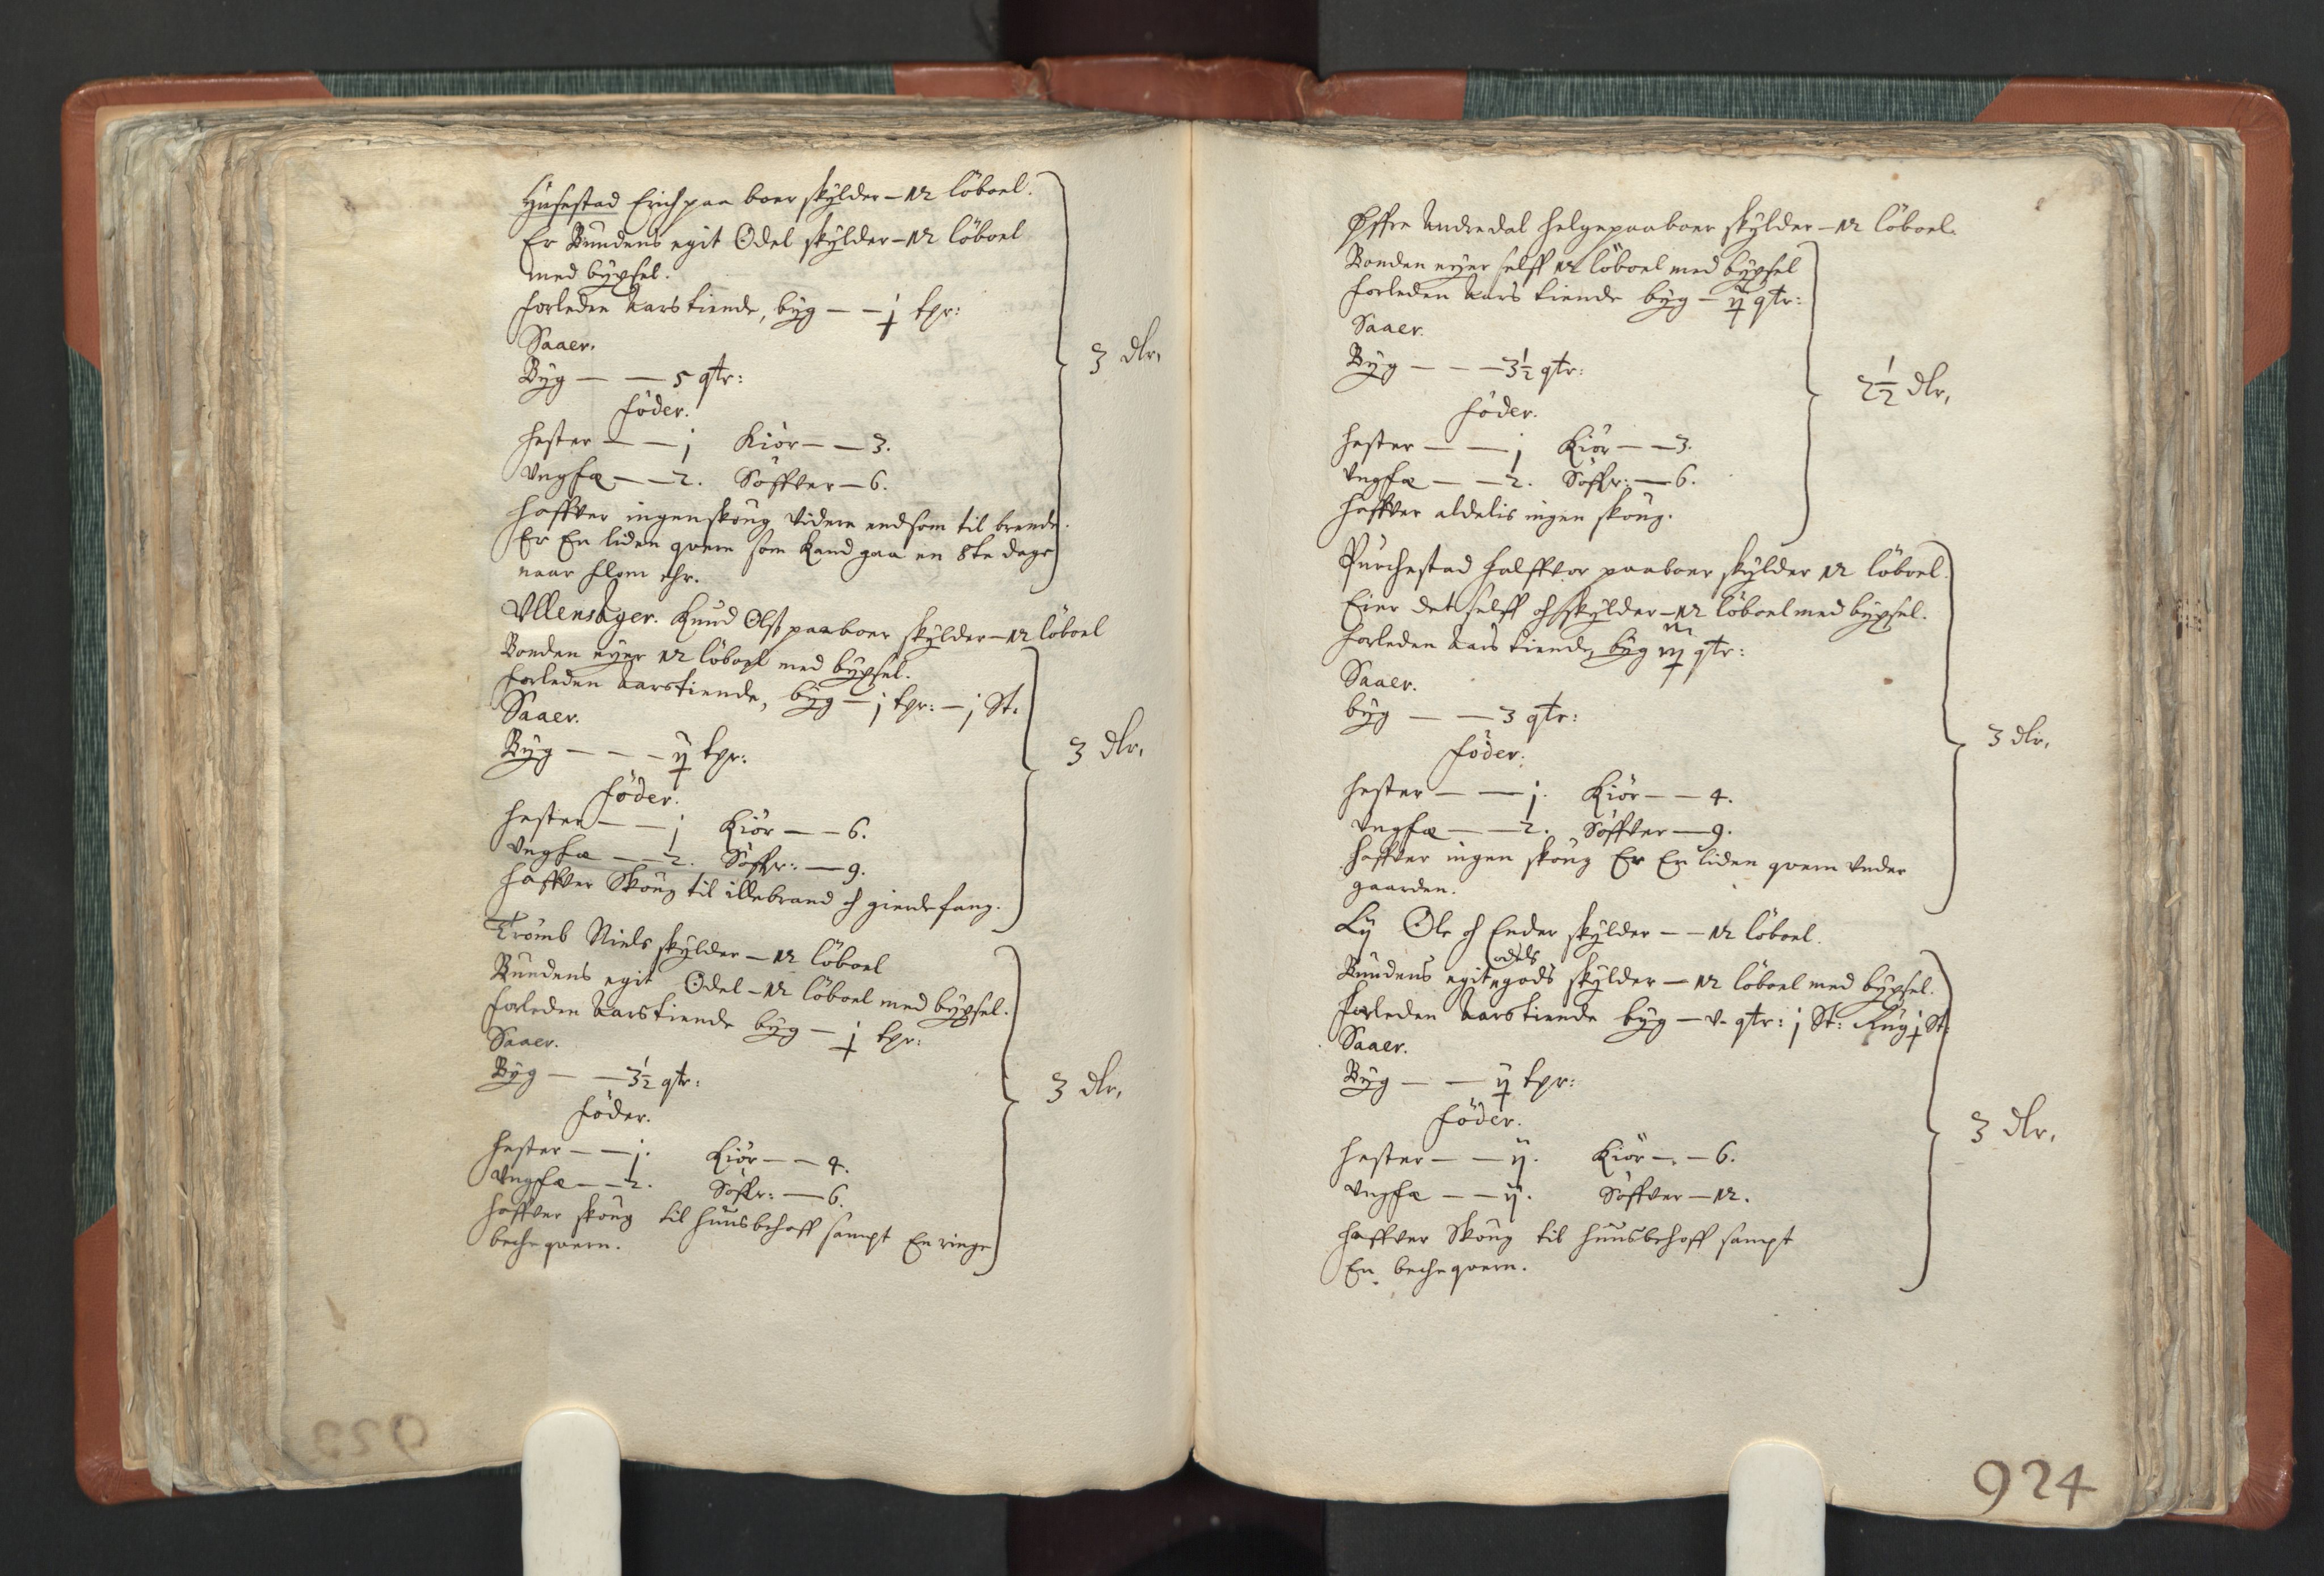 Husestad Erich paa boer skylder – 12 löboel.
Er Bundens egit Odel skylder – 12 löboel
med bÿgsel.
forleden Aars tiende, bÿg – – j tpr:
Saaer.
Bÿg – – 5 qtr:
föder.
hester – – j Kiör – – 3.
Vngfæ – – 2. Söffver – 6.
haffver ingen skoug videre end som til brende.
Er En liden quern som kand gaa en 8te dage
naar flom ehr.
3 dlr,
Ullensager. Knud Olss paaboer skylder – 12 löboel
Bonden eyer 12 löboel med bÿgsel.
forleden Aars tiende, bÿg – j tpr: – j St.
Saaer.
Bÿg – – – ij tpr:
föder.
hester – – j Kiör – – 6.
Vngfæ – – 2. Söffr: – 9.
haffver Skoug til illebrand och gierdefang.
3 dlr,
Tromb Niels skylder – 12 löboel
Bundens egit Odel – 12 löboel med bÿgsel.
forleden Aars tiende bÿg – j tpr:
Saaer.
Bÿg – – 3½ qtr:
föder.
hester – – j. Kiör – – 4.
Vngfæ – – 2. Söffr: – 6.
haffver skoug til huusbehoff sampt En ringe
beche quern.
3 dlr,
Øffre Andredal Helge paaboer skylder – 12 löboel.
Bonden eyer selff 12 löboel med bÿgsel
forleden Aars tiende bÿg – ij qtr:
Saaer.
Bÿg – – – 3½ qtr:
föder.
hester – – j Kiör – – 3.
Vngfæ – – 2. Söffr: – 6.
haffver aldelis ingen skoug.
2½ dlr,
Purchestad Halffvor paaboer skylder 12 löboel.
Eier det selff och skylder – 12 löboel med bÿgsel.
forleden Aars tiende, bÿg iij qtr:
Saaer.
bÿg – – 3 qtr:
föder.
hester – – j. Kiör – – 4.
Vngfæ – – 2. Söffver – 9.
haffver ingen skoug Er En liden quern Under
gaarden.
3 dlr,
Lÿ Ole och Ender skylder – – 12 löboel.
odels
Bundens egit gods skylder – 12 löboel med bÿgsel.
forleden Aars tiende bÿg – v qtr: j St: Rug j St:
Saaer.
Bÿg – – ij tpr:
föder.
hester – – ij. Kiör – – 6.
Vngfæ – – ij. Söffver – 12.
haffver Skoug til huusbehoff sampt
En beche quern.
3 dlr,
924